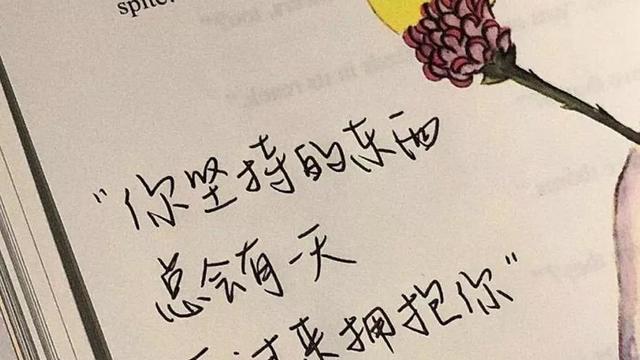 spite.
"你坚持的东西
总会有一天
反过来拥抱你"